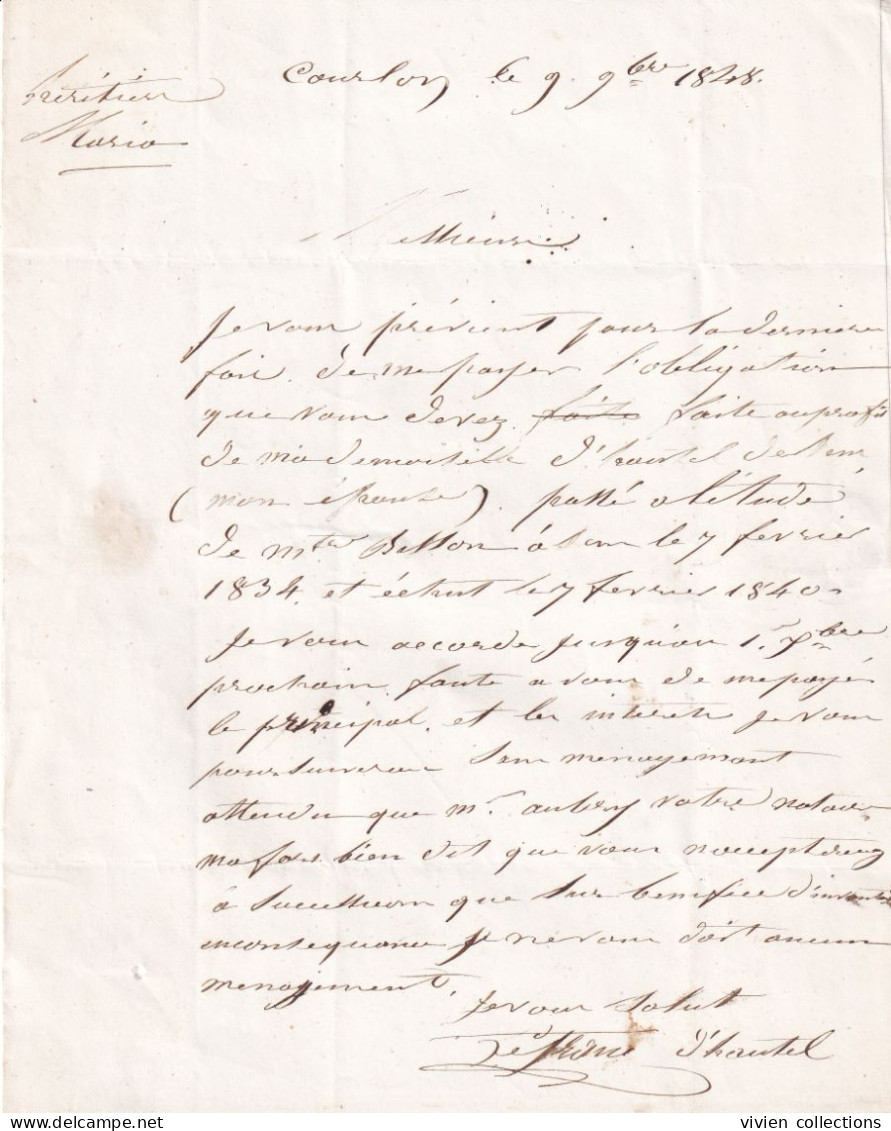 Courlon le 9. 9bre 1848.
héritiers
Maria
Messieurs
Je vous prévient pour la derniere
fois. de me payer l'obligation
que vous devez. faite faite au profit
de mademoiselle d'hautel de Sens
(mon épouse). passé a l'étude
de mtre Besson à Sens le 7 fevrier
1834. et échut le 7 fevrier 1840.
Je vous accorde jusquau 1er Xbre
prochain. faute a vous de me payés
le principal. et les interets je vous
poursuiverai sans menagement
attendu que mr. aubry votre notaire
ma fors bien dit que vous nacceptriez
à succession que sur benifice d'inventaire
enconsequance je ne vous doit aucun
menagement.
Je vous salut
d'hautel
vivien collections